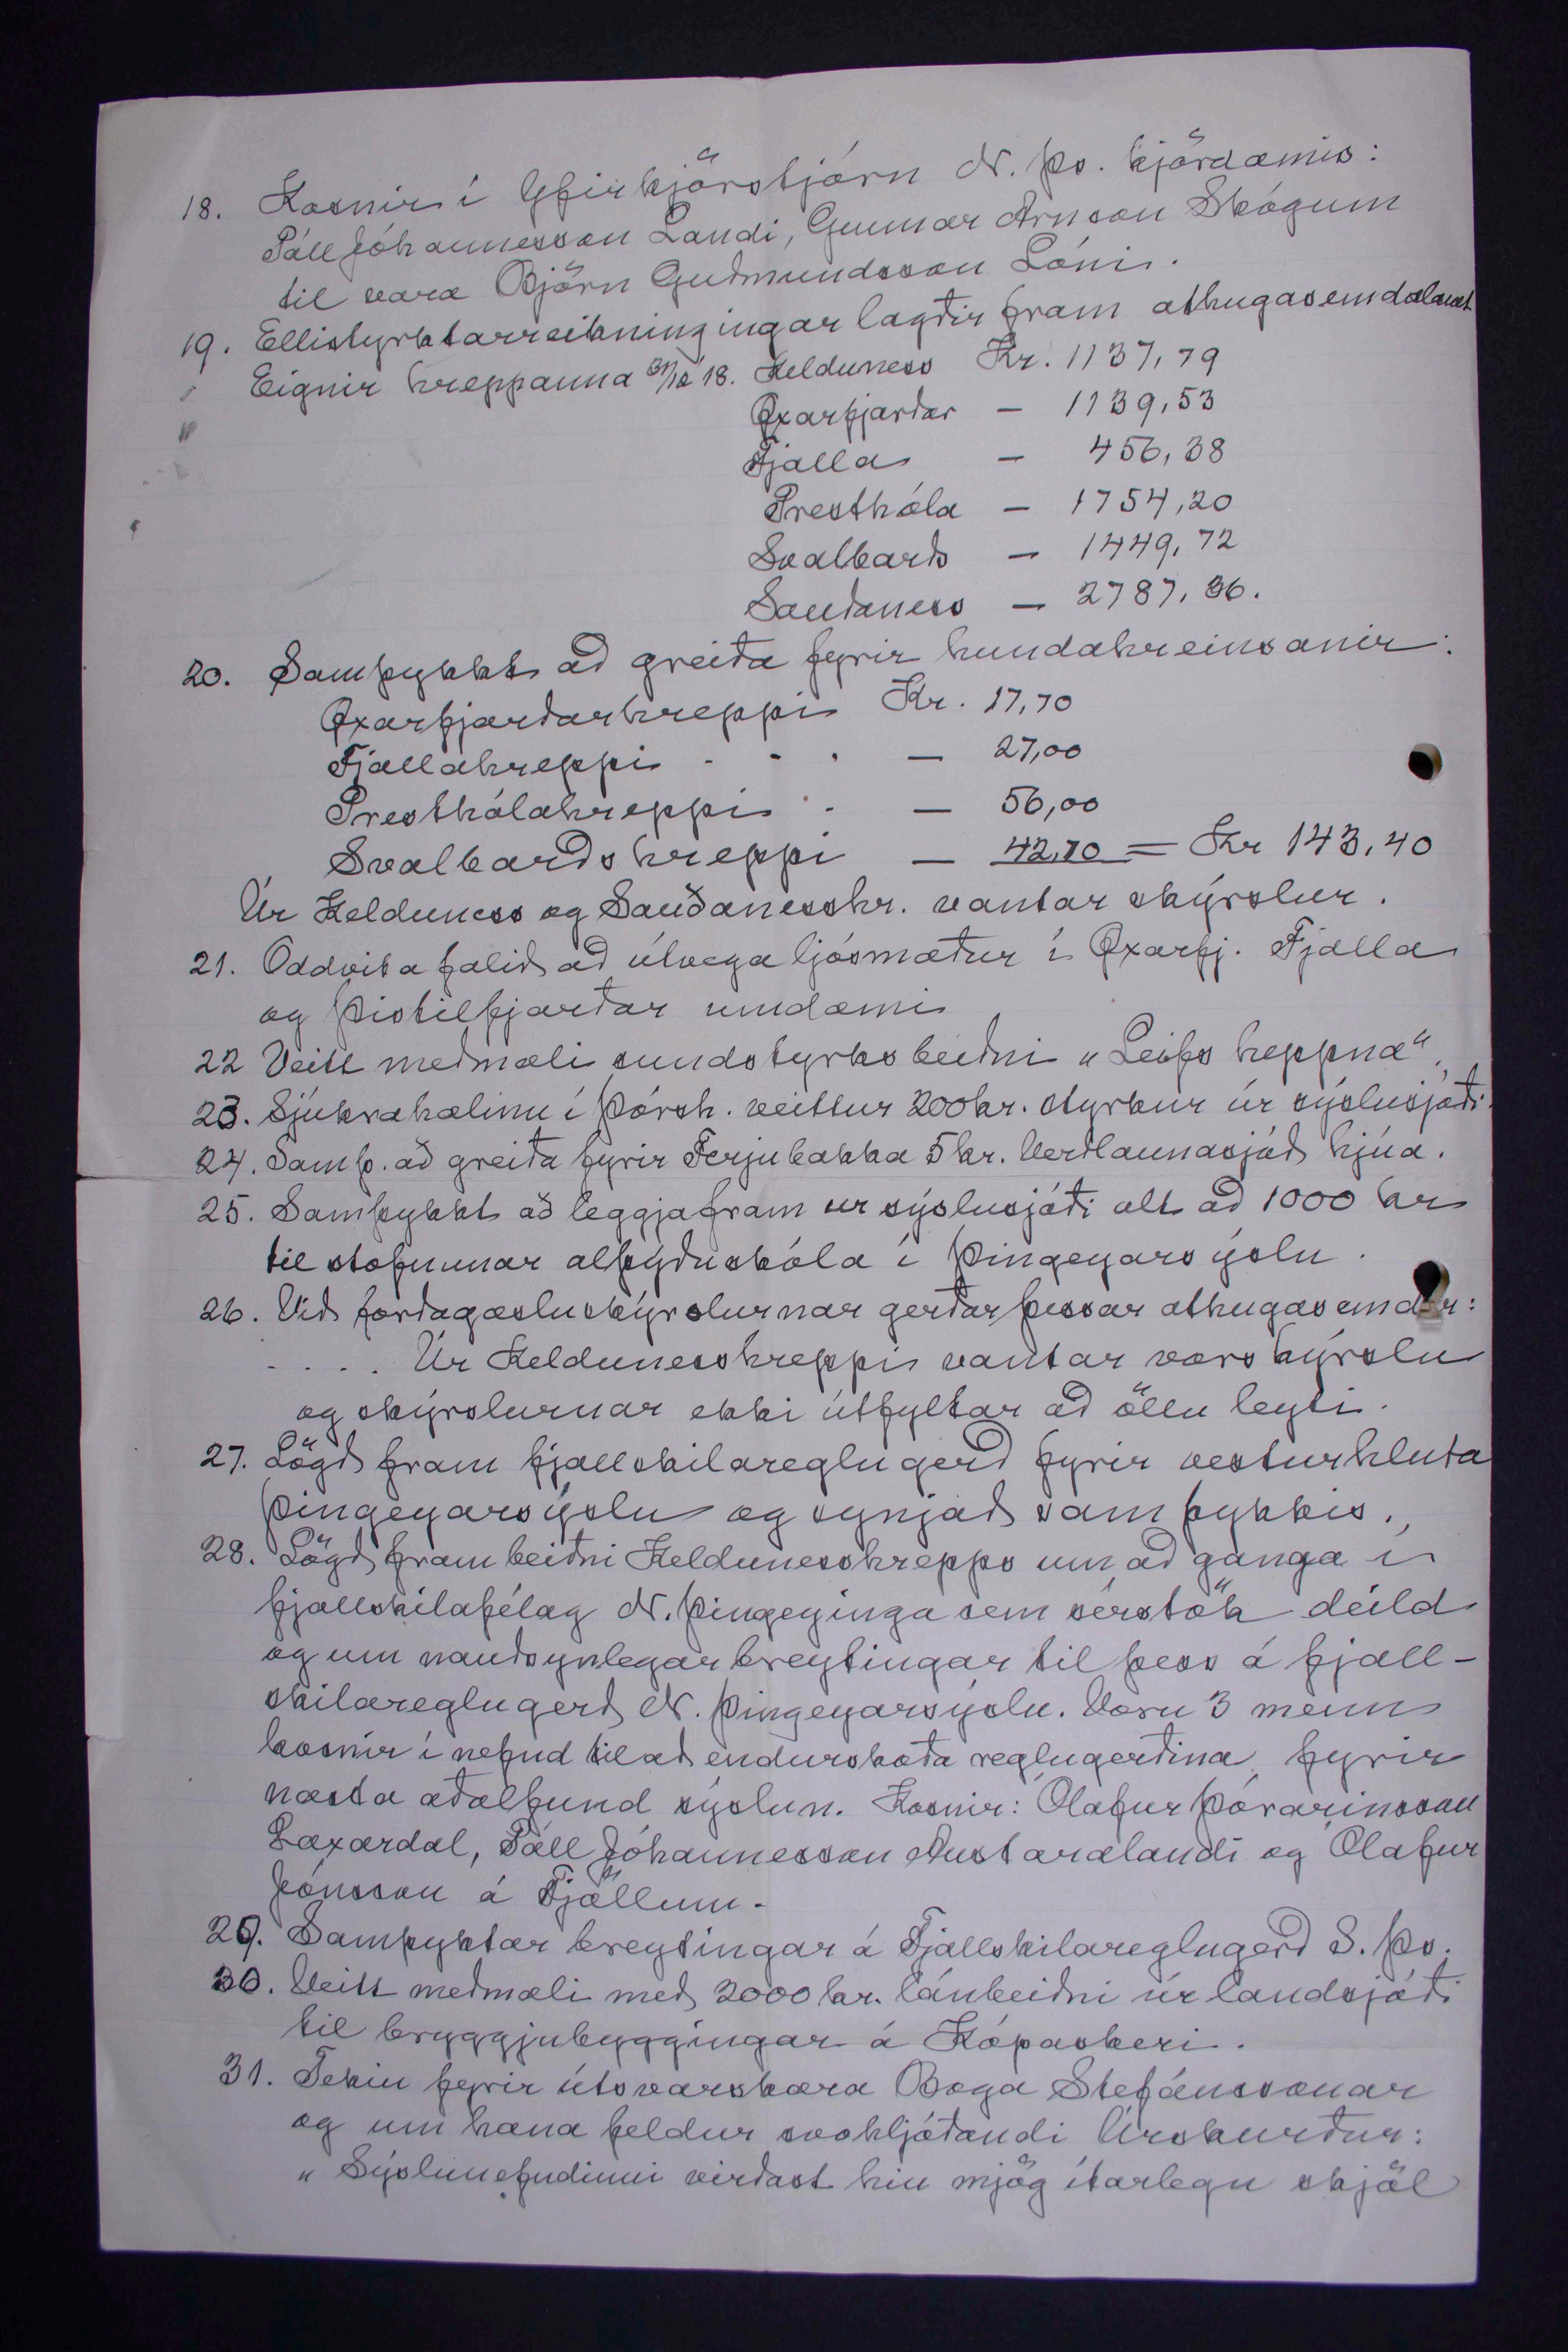 18. Kosnir í Yfirkjörstjórn N. Þs. kjördæmis:
Páll Jóhannesson Landi, Gunnar Árnson Skógum
til vara Björn Guðmundsson Lóni.
19. Ellistyrktarreikningingar lagðir fram athugasemdalaust
Eignir hreppanna 31/12 '18. Kelduness Kr. 1137,79
Öxarfjarðar — 1139,53
Fjalla — 456,38
Presthóla — 1754,20
Svalbarðs — 1449,72
Sauðaness — 2787,36.
20. Samþykkt að greiða fyrir hundahreinsanir:
Öxarfjarðarhreppi Kr. 17,70
Fjallahreppi - - - — 27,00
Presthólahreppi - - — 56,00
Svalbarðshreppi — 42,70 = Kr 143,40
Úr Kelduness og Sauðanesshr. vantar skýrslur.
21. Oddvita falið að útvega ljósmæður í Öxarfj. Fjalla
og Þistilfjarðar umdæmi
22 Veitt meðmæli sundstyrksbeiðni „Leifs heppna“.
23. Sjúkrahælinu í Þórsh. veittur 200 kr. styrkur úr sýslusjóði.
24. Samþ. að greiða fyrir Ferjubakka 5 kr. Verðlaunasjóð hjúa.
25. Samþykkt að leggja fram úr sýslusjóði alt að 1000 kr
til stofnunar alþýðuskóla í Þingeyarsýslu.
26. Við forðagæsluskýrslurnar gerðar þessar athugasemdir:
- . . . Úr Kelduneshreppi vantar vorskýrslu
og skýrslurnar ekki útfyltar að öllu leyti.
27. Lögð fram fjallskilareglugerð fyrir vesturhluta
Þingeyarsýslu og synjað samþykkis.
28. Lögð fram beiðni Keldunesshrepps um að ganga í
fjallskilafélag N. Þingeyinga sem sérstök deild
og um nauðsynlegar breytingar til þess á fjall-
skilareglugerð N. Þingeyarsýslu. Voru 3 menn
kosnir í nefnd til að endurskoða reglugerðina fyrir
næsta aðalfund sýslun. Kosnir: Ólafur Þórarinsson
Laxárdal, Páll Jóhannesson Austaralandi og Ólafur
Jónsson á Fjöllum.
29. Samþyktar breytingar á Fjallskilareglugerð S. Þs.
30. Veitt meðmæli með 2000 kr. lánbeiðni úr landsjóði
til bryggjubyggingar á Kópaskeri.
31. Tekin fyrir útsvarskæra Boga Stefánssonar
og um hana feldur svohljóðandi Úrskurður:
„Sýslunefndinni virðast hin mjög ítarlegu skjöl